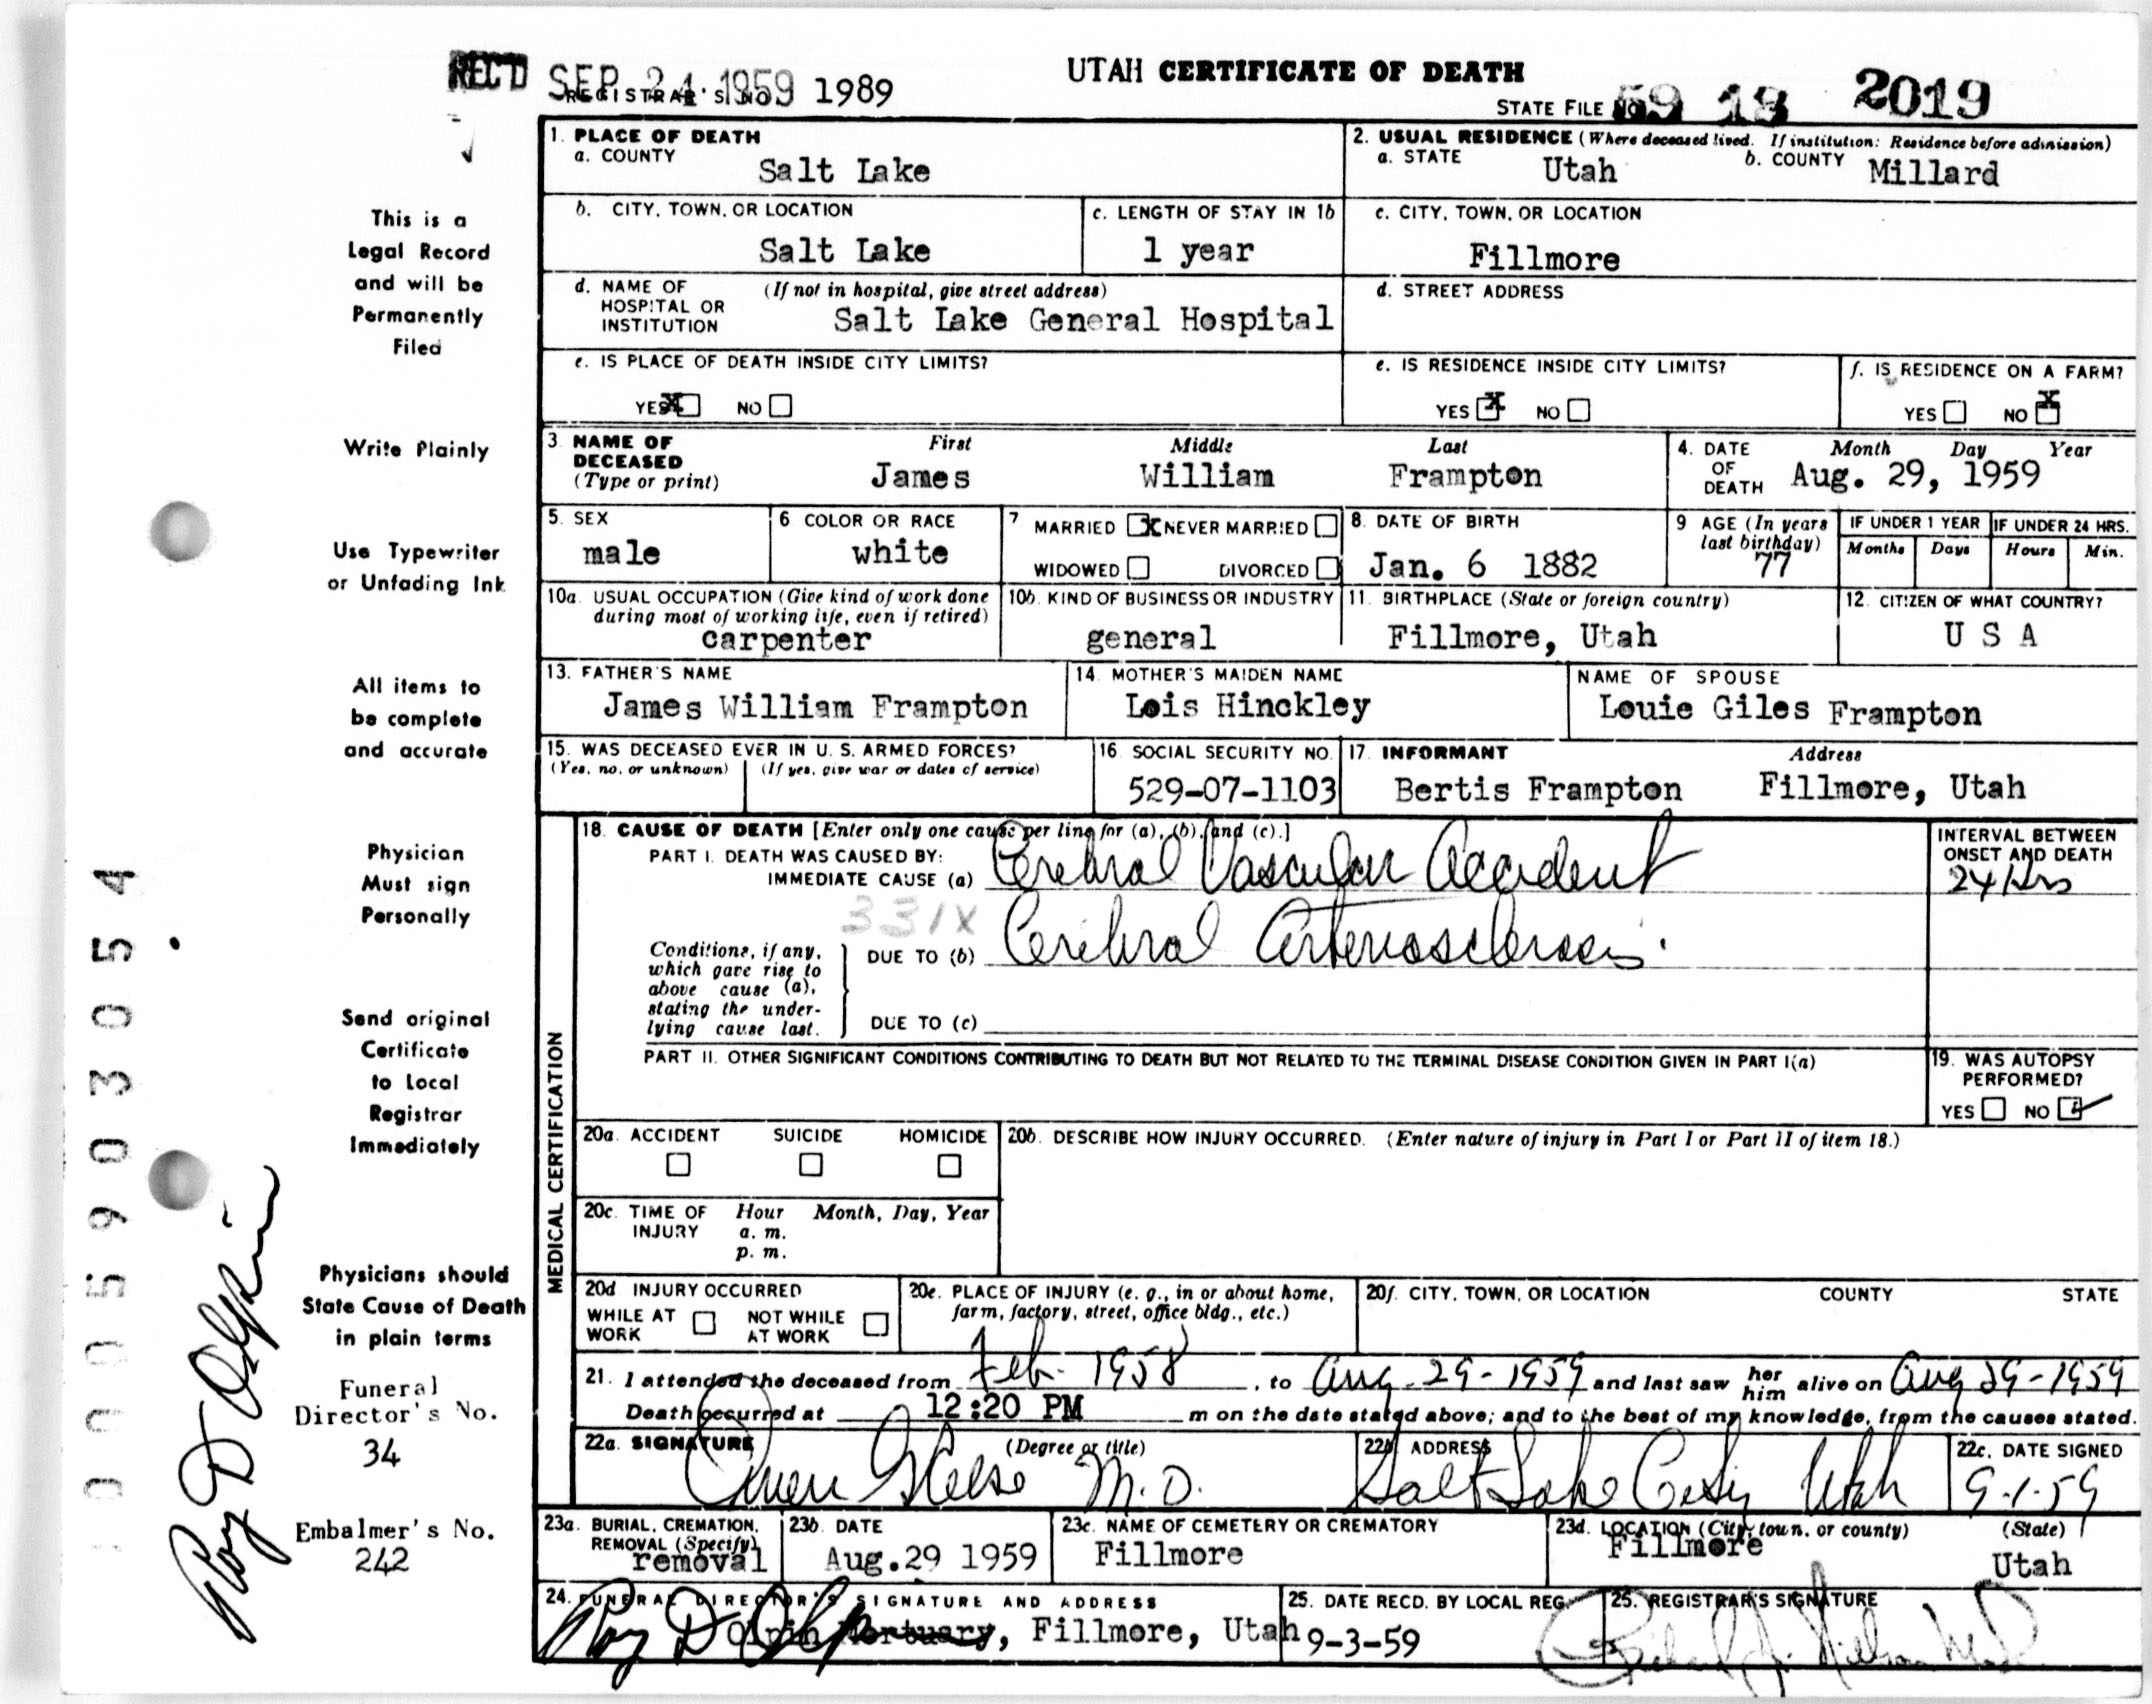 REC'D SEP 24 1959
REGISTRAR'S NO. 1989
UTAH CERTIFICATE OF DEATH
STATE FILE NO. 59 18 2019
This is a
Legal Record
and will be
Permanently
Filed
Write Plainly
Use Typewriter
or Unfading Ink
All items to
be complete
and accurate
Physician
Must sign
Personally
Send original
Certificate
to Local
Registrar
Immediately
Physicians should
State Cause of Death
in plain terms
Funeral
Director's No.
34
Embalmer's No.
242
0005903054
Roy D Olpin
1. PLACE OF DEATH
a. COUNTY
Salt Lake
2. USUAL RESIDENCE (Where deceased lived. If institution: Residence before admission)
a. STATE Utah b. COUNTY Millard
b. CITY, TOWN, OR LOCATION
Salt Lake
c. LENGTH OF STAY IN 1b
1 year
c. CITY, TOWN, OR LOCATION
Fillmore
d. NAME OF HOSPITAL OR INSTITUTION (If not in hospital, give street address)
Salt Lake General Hospital
d. STREET ADDRESS
e. IS PLACE OF DEATH INSIDE CITY LIMITS?
YES X NO
e. IS RESIDENCE INSIDE CITY LIMITS?
YES X NO
f. IS RESIDENCE ON A FARM?
YES NO X
3. NAME OF DECEASED (Type or print)
First Middle Last
James William Frampton
4. DATE OF DEATH Month Day Year
Aug. 29, 1959
5. SEX
male
6 COLOR OR RACE
white
7 MARRIED X NEVER MARRIED
WIDOWED DIVORCED
8. DATE OF BIRTH
Jan. 6 1882
9 AGE (In years last birthday)
77
IF UNDER 1 YEAR
Months Days
IF UNDER 24 HRS.
Hours Min.
10a. USUAL OCCUPATION (Give kind of work done during most of working life, even if retired)
carpenter
10b. KIND OF BUSINESS OR INDUSTRY
general
11. BIRTHPLACE (State or foreign country)
Fillmore, Utah
12. CITIZEN OF WHAT COUNTRY?
U S A
13. FATHER'S NAME
James William Frampton
14. MOTHER'S MAIDEN NAME
Lois Hinckley
NAME OF SPOUSE
Louie Giles Frampton
15. WAS DECEASED EVER IN U. S. ARMED FORCES?
(Yes, no, or unknown) (If yes, give war or dates of service)
16. SOCIAL SECURITY NO.
529-07-1103
17. INFORMANT Address
Bertis Frampton Fillmore, Utah
MEDICAL CERTIFICATION
18. CAUSE OF DEATH [Enter only one cause per line for (a), (b), and (c).]
PART I. DEATH WAS CAUSED BY:
IMMEDIATE CAUSE (a) Cerebral Vascular Accident
INTERVAL BETWEEN ONSET AND DEATH
24 Hrs
331X
Conditions, if any, which gave rise to above cause (a), stating the underlying cause last.
DUE TO (b) Cerebral Arteriosclerosis.
DUE TO (c)
PART II. OTHER SIGNIFICANT CONDITIONS CONTRIBUTING TO DEATH BUT NOT RELATED TO THE TERMINAL DISEASE CONDITION GIVEN IN PART I(a)
19. WAS AUTOPSY PERFORMED?
YES NO
20a. ACCIDENT SUICIDE HOMICIDE
20b. DESCRIBE HOW INJURY OCCURRED. (Enter nature of injury in Part I or Part II of item 18.)
20c. TIME OF INJURY Hour Month, Day, Year
a. m.
p. m.
20d INJURY OCCURRED
WHILE AT WORK NOT WHILE AT WORK
20e. PLACE OF INJURY (e. g., in or about home, farm, factory, street, office bldg., etc.)
20f. CITY, TOWN, OR LOCATION COUNTY STATE
21. I attended the deceased from Feb. 1958, to Aug. 29-1959 and last saw her him alive on Aug 29-1959
Death occurred at 12:20 PM m on the date stated above; and to the best of my knowledge, from the causes stated.
22a. SIGNATURE (Degree or title)
Owen M.D.
22b. ADDRESS
Salt Lake City Utah
22c. DATE SIGNED
9-1-59
23a. BURIAL, CREMATION, REMOVAL (Specify)
removal
23b. DATE
Aug. 29 1959
23c. NAME OF CEMETERY OR CREMATORY
Fillmore
23d. LOCATION (City, town, or county) (State)
Fillmore Utah
24. FUNERAL DIRECTOR'S SIGNATURE AND ADDRESS
Roy D Olpin
Olpin Mortuary, Fillmore, Utah
25. DATE RECD. BY LOCAL REG.
9-3-59
25. REGISTRAR'S SIGNATURE